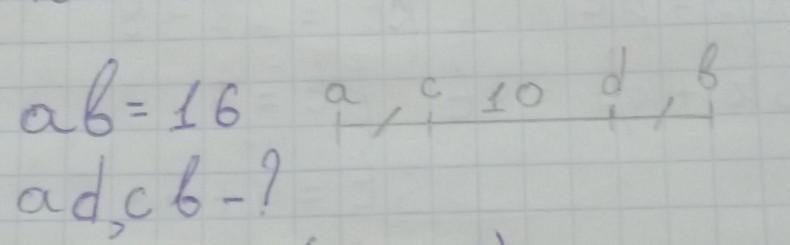 ab = 16 a c 10 d b
ad, cb - ?